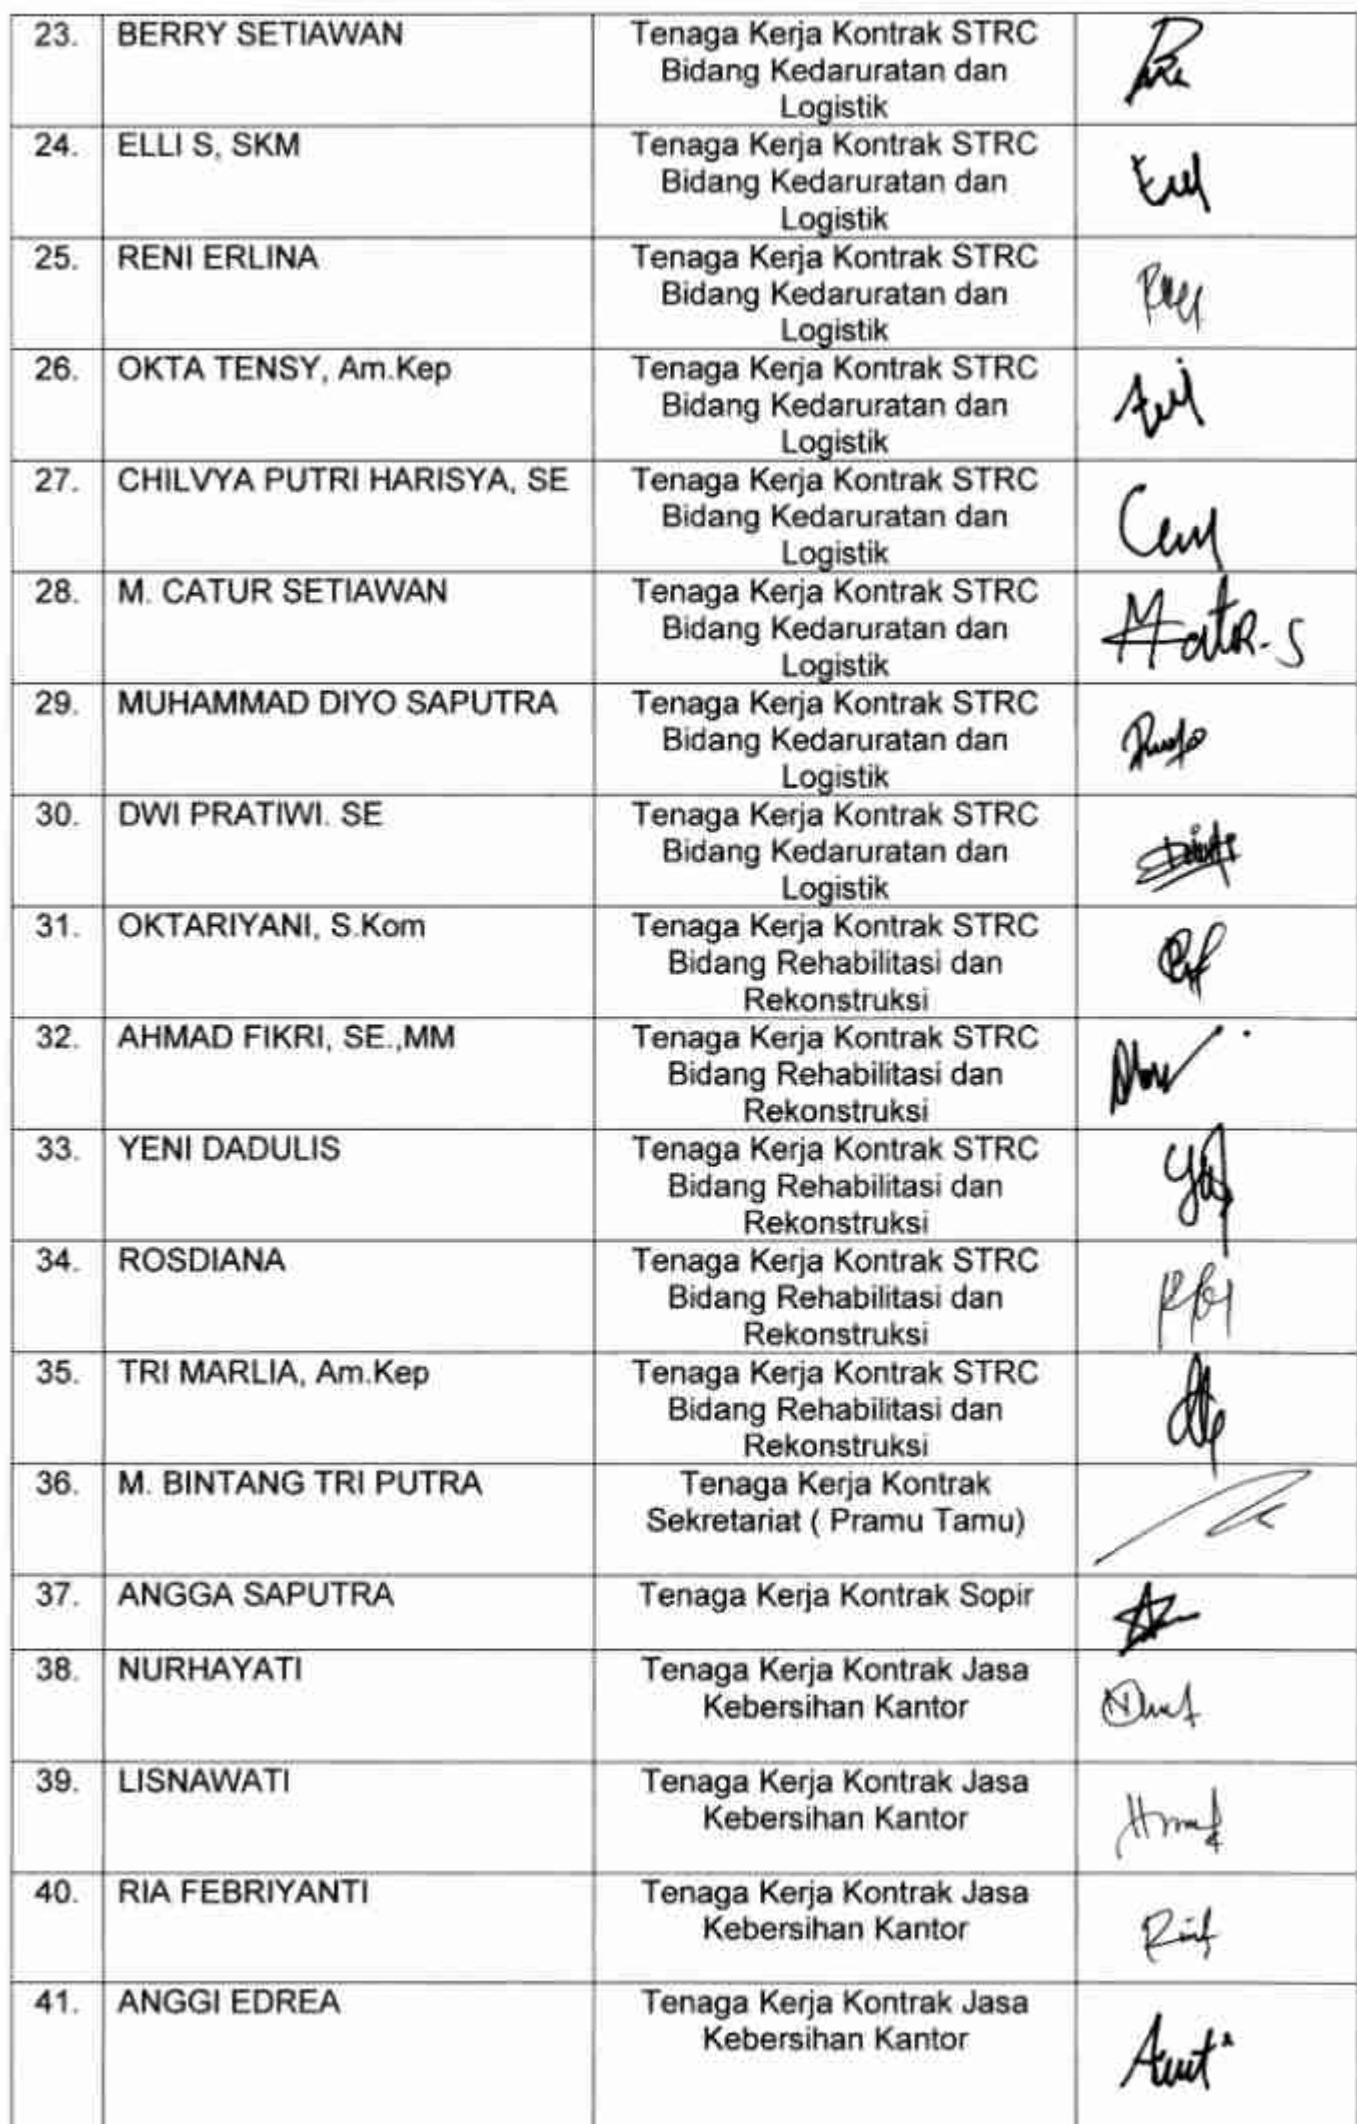 23. BERRY SETIAWAN Tenaga Kerja Kontrak STRC
Bidang Kedaruratan dan
Logistik
24. ELLI S, SKM Tenaga Kerja Kontrak STRC
Bidang Kedaruratan dan
Logistik
25. RENI ERLINA Tenaga Kerja Kontrak STRC
Bidang Kedaruratan dan
Logistik
26. OKTA TENSY, Am.Kep Tenaga Kerja Kontrak STRC
Bidang Kedaruratan dan
Logistik
27. CHILVYA PUTRI HARISYA, SE Tenaga Kerja Kontrak STRC
Bidang Kedaruratan dan
Logistik
28. M. CATUR SETIAWAN Tenaga Kerja Kontrak STRC
Bidang Kedaruratan dan
Logistik
29. MUHAMMAD DIYO SAPUTRA Tenaga Kerja Kontrak STRC
Bidang Kedaruratan dan
Logistik
30. DWI PRATIWI. SE Tenaga Kerja Kontrak STRC
Bidang Kedaruratan dan
Logistik
31. OKTARIYANI, S.Kom Tenaga Kerja Kontrak STRC
Bidang Rehabilitasi dan
Rekonstruksi
32. AHMAD FIKRI, SE.,MM Tenaga Kerja Kontrak STRC
Bidang Rehabilitasi dan
Rekonstruksi
33. YENI DADULIS Tenaga Kerja Kontrak STRC
Bidang Rehabilitasi dan
Rekonstruksi
34. ROSDIANA Tenaga Kerja Kontrak STRC
Bidang Rehabilitasi dan
Rekonstruksi
35. TRI MARLIA, Am.Kep Tenaga Kerja Kontrak STRC
Bidang Rehabilitasi dan
Rekonstruksi
36. M. BINTANG TRI PUTRA Tenaga Kerja Kontrak
Sekretariat ( Pramu Tamu)
37. ANGGA SAPUTRA Tenaga Kerja Kontrak Sopir
38. NURHAYATI Tenaga Kerja Kontrak Jasa
Kebersihan Kantor
39. LISNAWATI Tenaga Kerja Kontrak Jasa
Kebersihan Kantor
40. RIA FEBRIYANTI Tenaga Kerja Kontrak Jasa
Kebersihan Kantor
41. ANGGI EDREA Tenaga Kerja Kontrak Jasa
Kebersihan Kantor